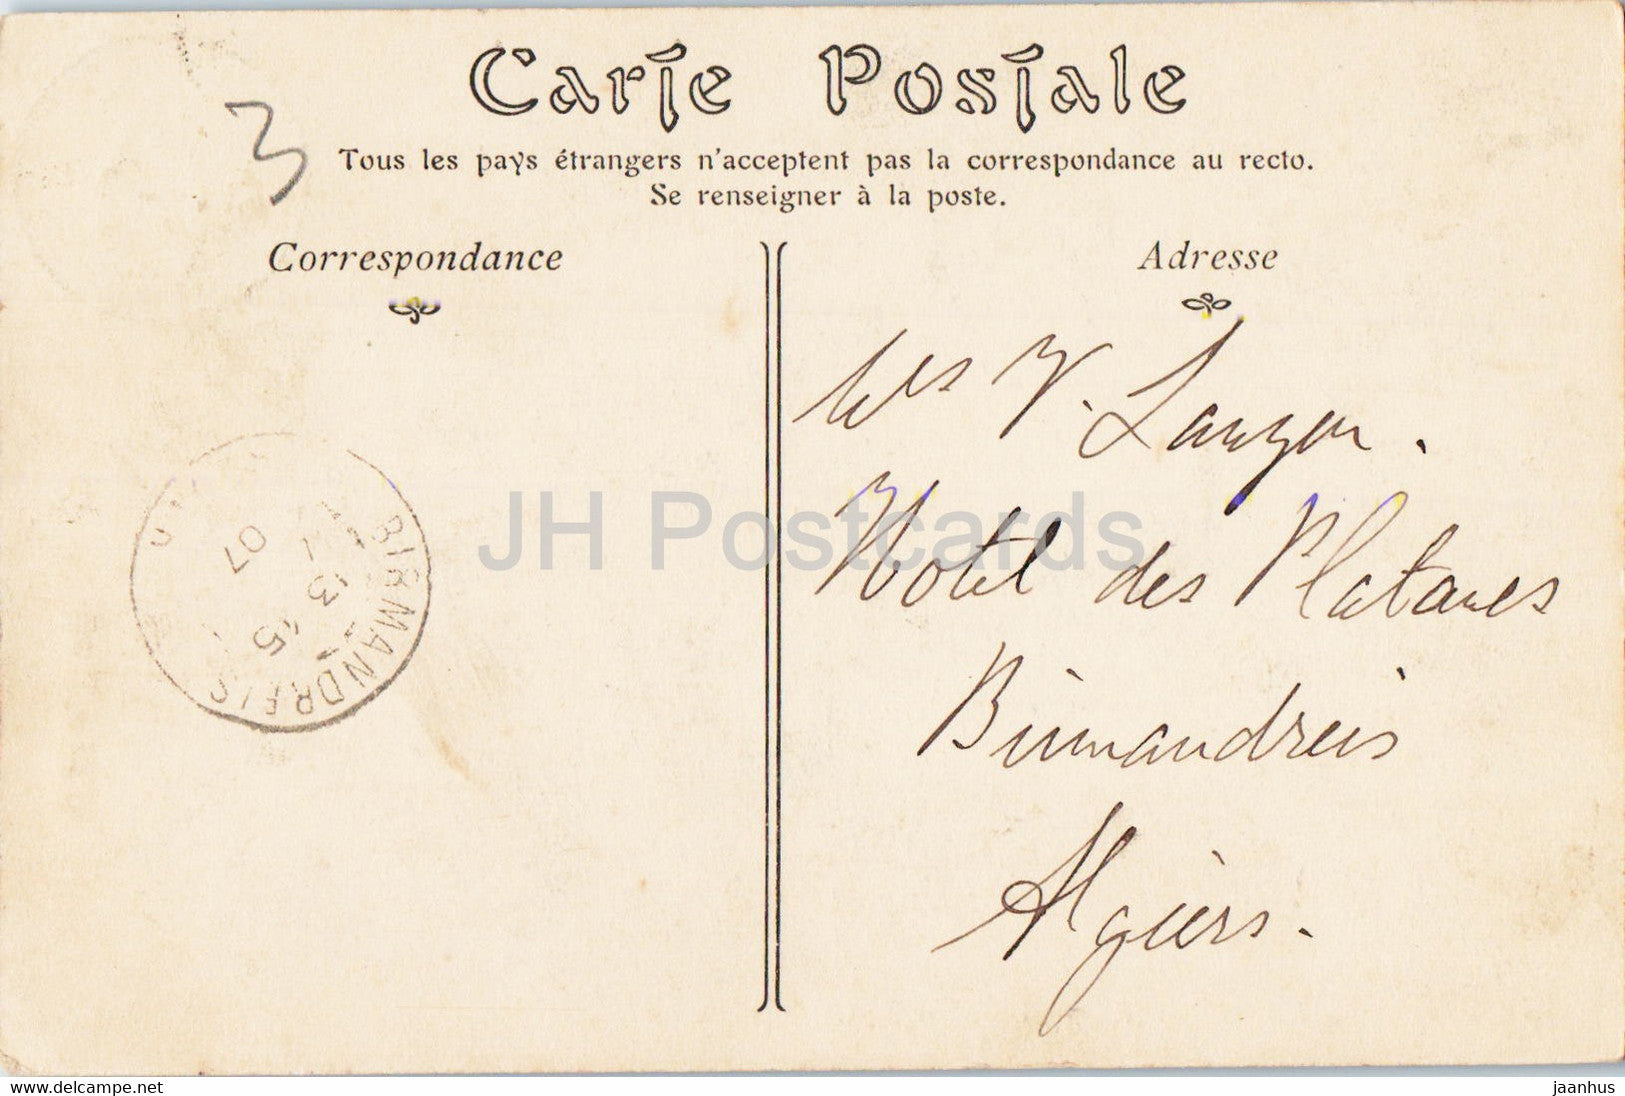 Carte Postale
3
Tous les pays étrangers n'acceptent pas la correspondance au recto.
Se renseigner à la poste.
Correspondance
Adresse
V.
Hotel des Platanes
Birmandreis
Algiers.
BIRMANDREIS
13 45
07
JH Postcards
www.delcampe.net
jaanhus